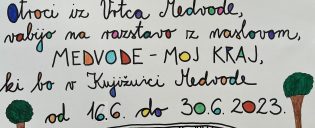 Otroci iz Vrtca Medvode,
vabijo na razstavo z naslovom,
MEDVODE - MOJ KRAJ,
ki bo v Knjižnici Medvode
od 16.6. do 30.6.2023.